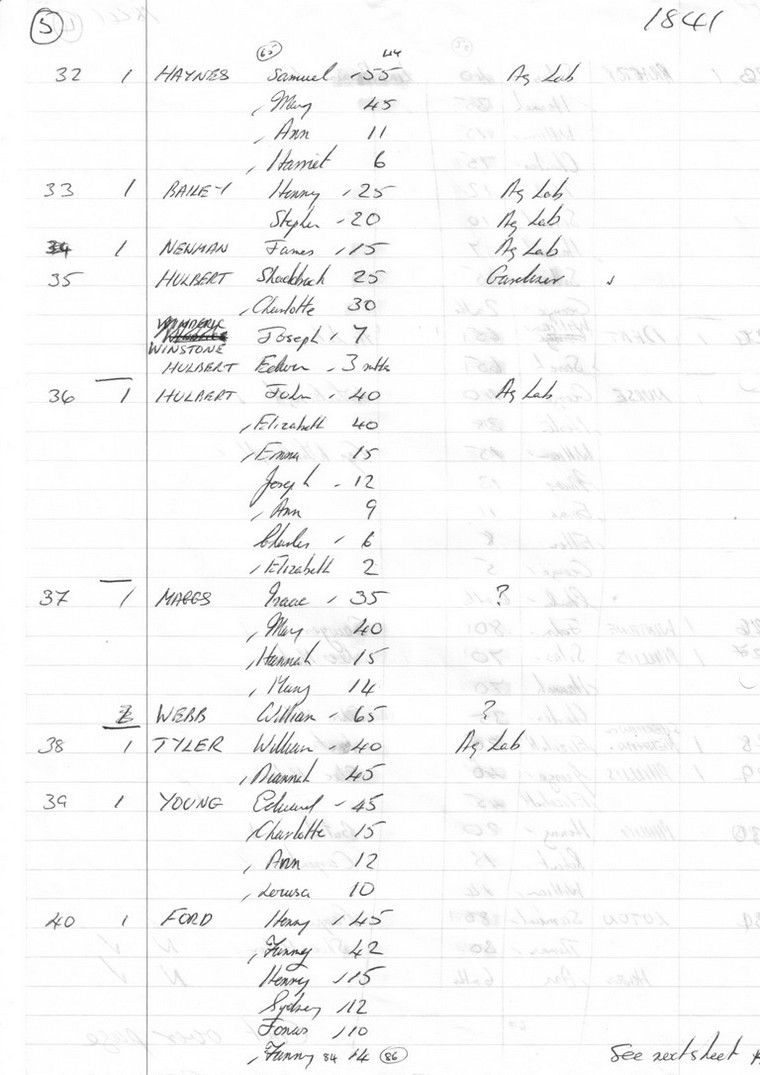 5 1841
65 44
32 1 HAYNES Samuel - 55 Ag Lab
, Mary 45
, Ann 11
, Harriet 6
33 1 BAILEY Henry , 25 Ag Lab
Stephen - 20 Ag Lab
34 1 NENMAN James , 15 Ag Lab
35 HULBERT Shadrach 25 Gardiner
, Charlotte 30
WINSTONE Joseph , 7
HULBERT Edwin - 3 mths
36 1 HULBERT John - 40 Ag Lab
, Elizabeth 40
, Emma 15
Joseph - 12
, Ann 9
Charles , 6
, Elizabeth 2
37 1 MAGGS Isaac , 35 ?
, Mary 40
, Hannah 15
, Mary 14
WEBB William - 65 ?
38 1 TYLER William - 40 Ag Lab
, Diannah 45
39 1 YOUNG Edward - 45
, Charlotte 15
, Ann 12
, Lerusa 10
40 1 FORD Henry , 45
, Fanney 42
Henry , 15
Sydney , 12
Jonas , 10
, Fanny 84 14 86
See next sheet